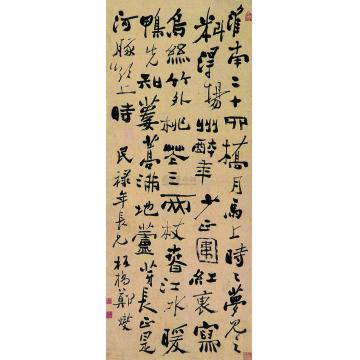 淮南二十四橋月馬上時〻夢見之
料得揚州醉年少正圍紅寫
烏絲竹外桃花三兩枝春江水暖
鴨先知蔞蒿滿地蘆芽正是
河豚欲上時 民祿年長兄 板橋鄭燮